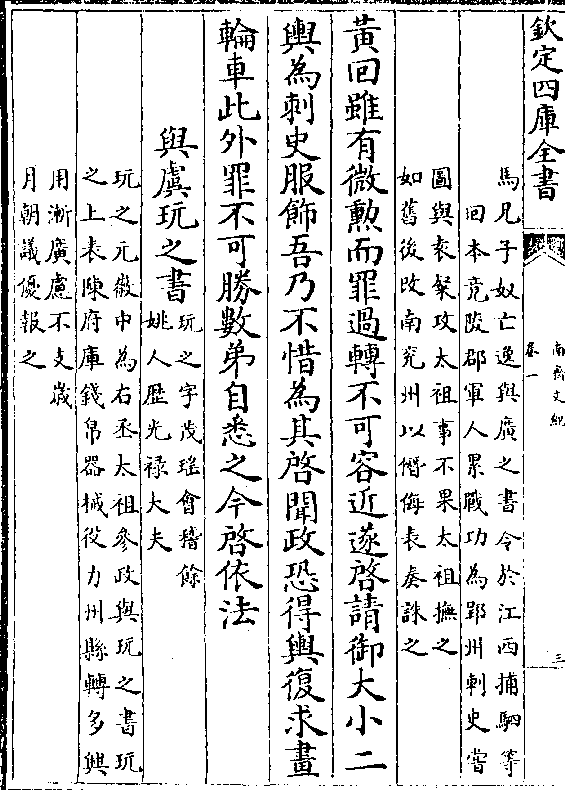 欽定四庫全書
南齊文紀
卷一
三
馬凡子奴亡逸與廣之書令於江西捕馹等
回本竟陵郡軍人累戰功為郢州刺史嘗
圖與袁粲攻太祖事不果太祖撫之
如舊後改南兖州以僭侮表奏誅之
黃回雖有微勲而罪過轉不可容近遂啓請御大小二
輿為刺史服飾吾乃不惜為其啓聞政恐得輿復求畫
輪車此外罪不可勝數弟自悉之今啓依法
與虞玩之書
玩之字茂瑤會稽餘
姚人歴光禄大夫
玩之元徽中為右丞太祖參政與玩之書玩
之上表陳府庫錢帛器械役力州縣轉多興
用漸廣慮不支歲
月朝議優報之